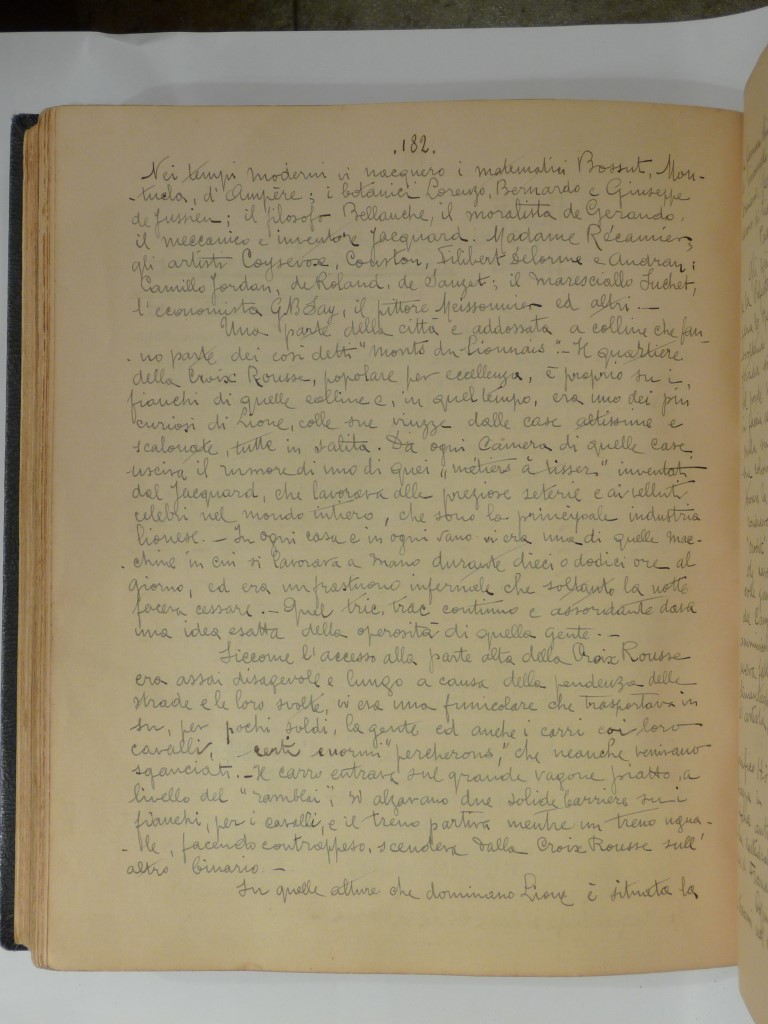 .182.
Nei tempi moderni vi nacquero i matematici Bossut, Mon-
tucla, d'Ampère; i botanici Lorenzo, Bernardo e Giuseppe
de Jussieu; il filosofo Bellanche, il moralista de Gerando,
il meccanico e inventore Jacquard. Madame Récamier,
gli artisti Coysevox, Couston, Filibert Delorme e Audran;
Camillo Jordan, de Roland, de Sauzet; il maresciallo Suchet,
l'economista G.B. Say, il pittore Meissonnier ed altri.—
Una parte della città è addossata a colline che fan-
no parte dei così detti "monts du Lionnais".— Il quartiere
della Croix Rousse, popolare per eccellenza, è proprio sui
fianchi di quelle colline e, in quel tempo, era uno dei più
curiosi di Lione, colle sue viuzze dalle case altissime e
scalonate, tutte in salita. Da ogni camera di quelle case
usciva il rumore di uno di quei "métiers à tisser" inventati
dal Jacquard, che lavorava alle preziose seterie e ai velluti
celebri nel mondo intiero, che sono la principale industria
lionese.— In ogni casa e in ogni vano vi era una di quelle mac-
chine in cui si lavorava a mano durante dieci o dodici ore al
giorno, ed era un frastuono infernale che soltanto la notte
faceva cessare.— Quel tric, trac continuo e assordante dava
una idea esatta della operosità di quella gente.—
Siccome l'accesso alla parte alta della Croix Rousse
era assai disagevole e lungo a causa della pendenza delle
strade e le loro svolte, vi era una funicolare che trasportava in
su, per pochi soldi, la gente ed anche i carri coi loro
cavalli, certi enormi "percherons," che neanche venivano
sganciati.— Il carro entrava sul grande vagone piatto, a
livello del "ramblei", si alzavano due solide barriere sui
fianchi, per i cavalli, e il treno partiva mentre un treno ugua-
le, facendo contrappeso, scendeva dalla Croix Rousse sull'
altro binario.—
Su quelle alture che dominano Lione è situata la